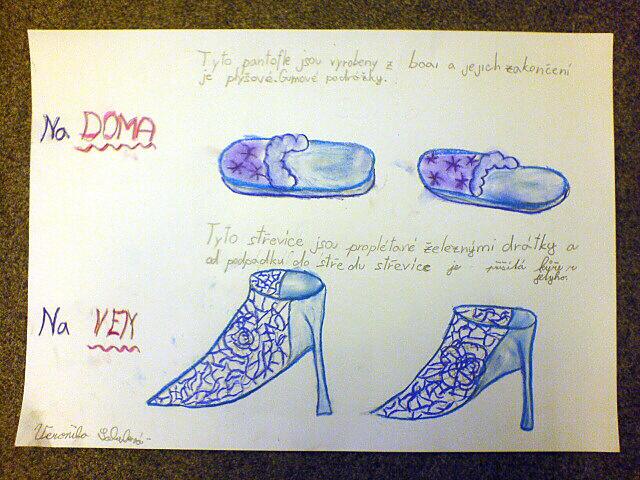 Tyto pantofle jsou vyrobeny z boai a jejich zakončení
je plyšové. Gumové podrážky.
Na DOMA
Tyto střevíce jsou proplétané železnými drátky a
od podpadku do středu střevíce je
Na VEN
Veronika